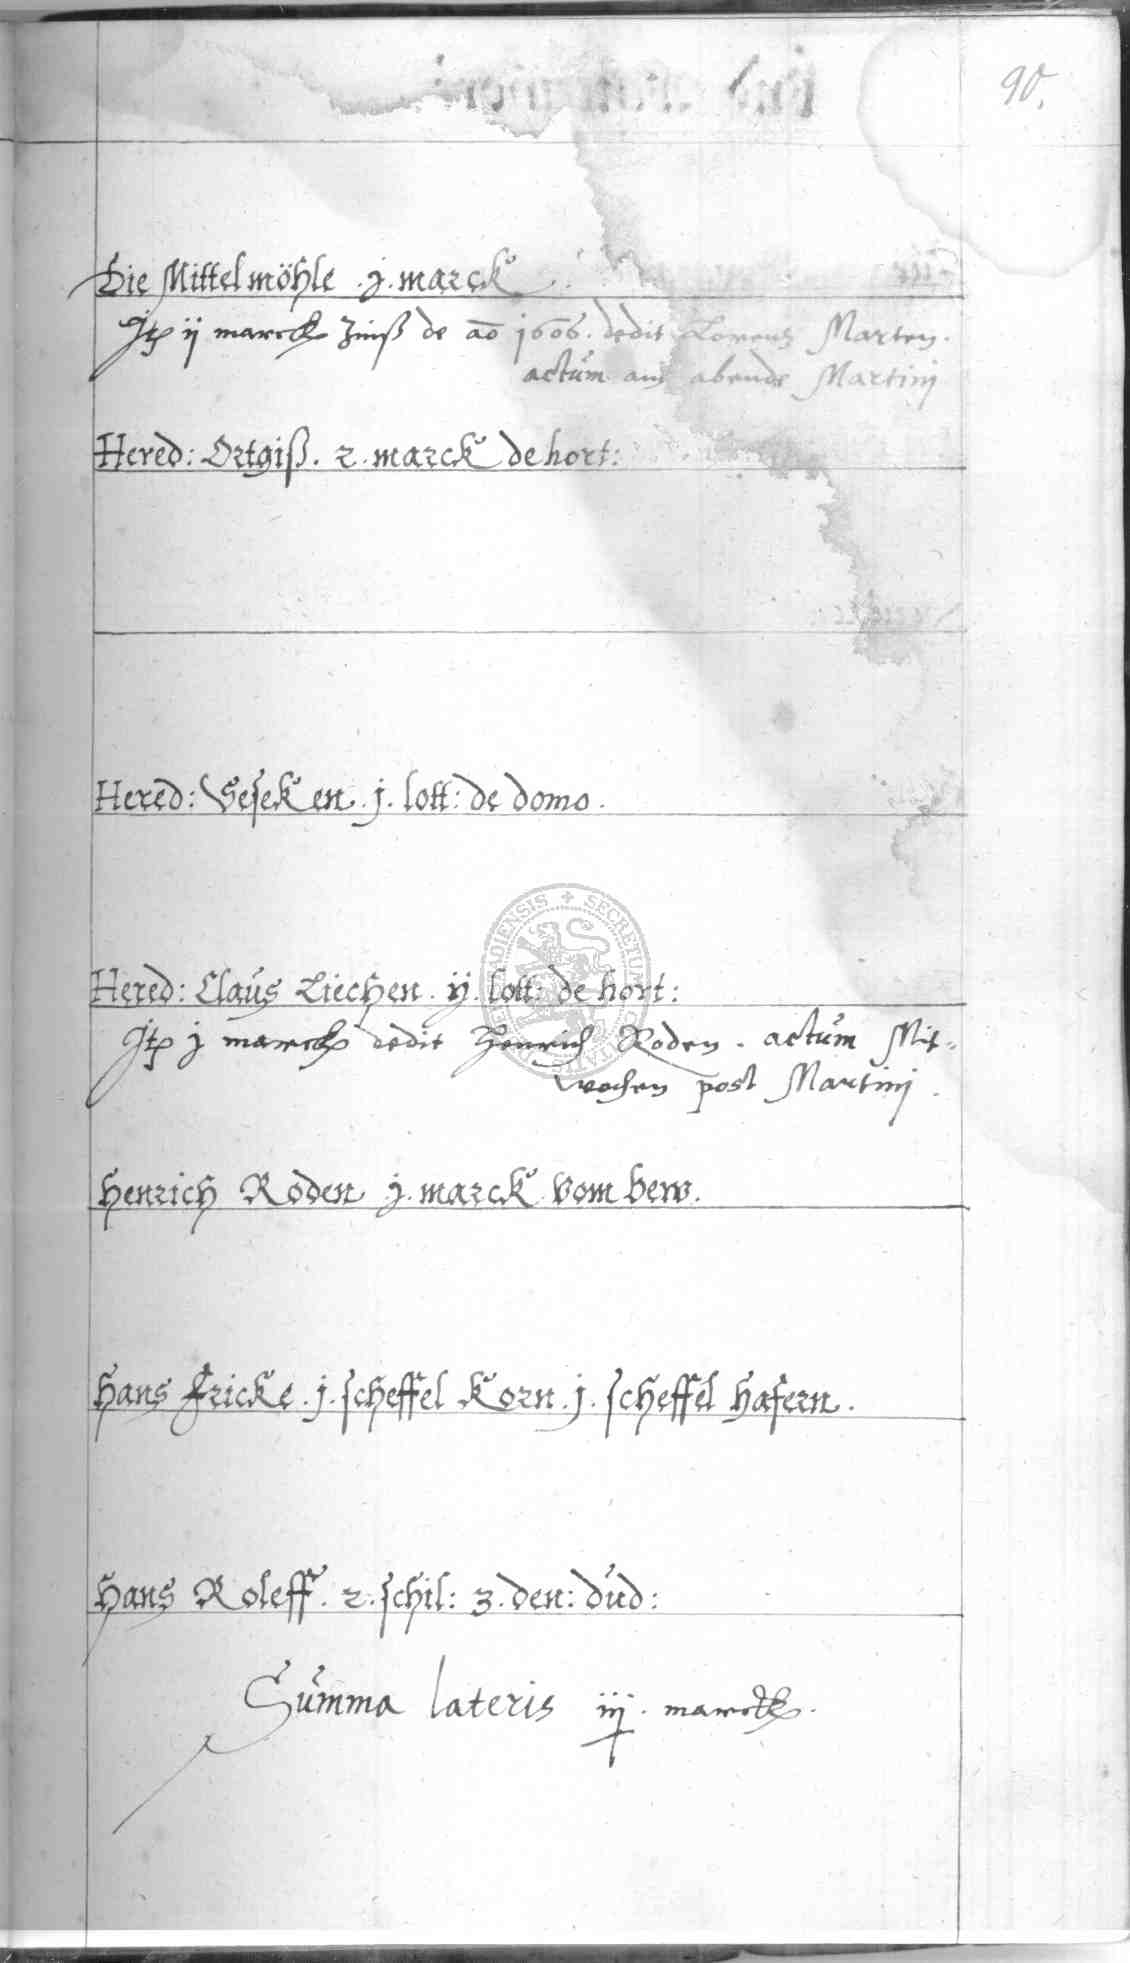 90.
Die Mittelmöhle . j . marck
Itp ij marck Zinß de ao 1606. dedit Lorenz Marten.
actum am abende Martinj
Hered: Ortgiß . 2 . marck de hort:
Hered: Veseken . j . lott: de domo.
Hered: Claus Liechen . ij . lott: de hort:
Itp j marck dedit Henrich Roden . actum Mit=
wochen post Martinj .
Henrich Roden j . marck vom
Hans Fricke . j . scheffel Korn . j . scheffel Hafern .
Hans Roleff . 2 . schil: 3 . den: dud:
Summa lateris iij . marck .
SECRETUM